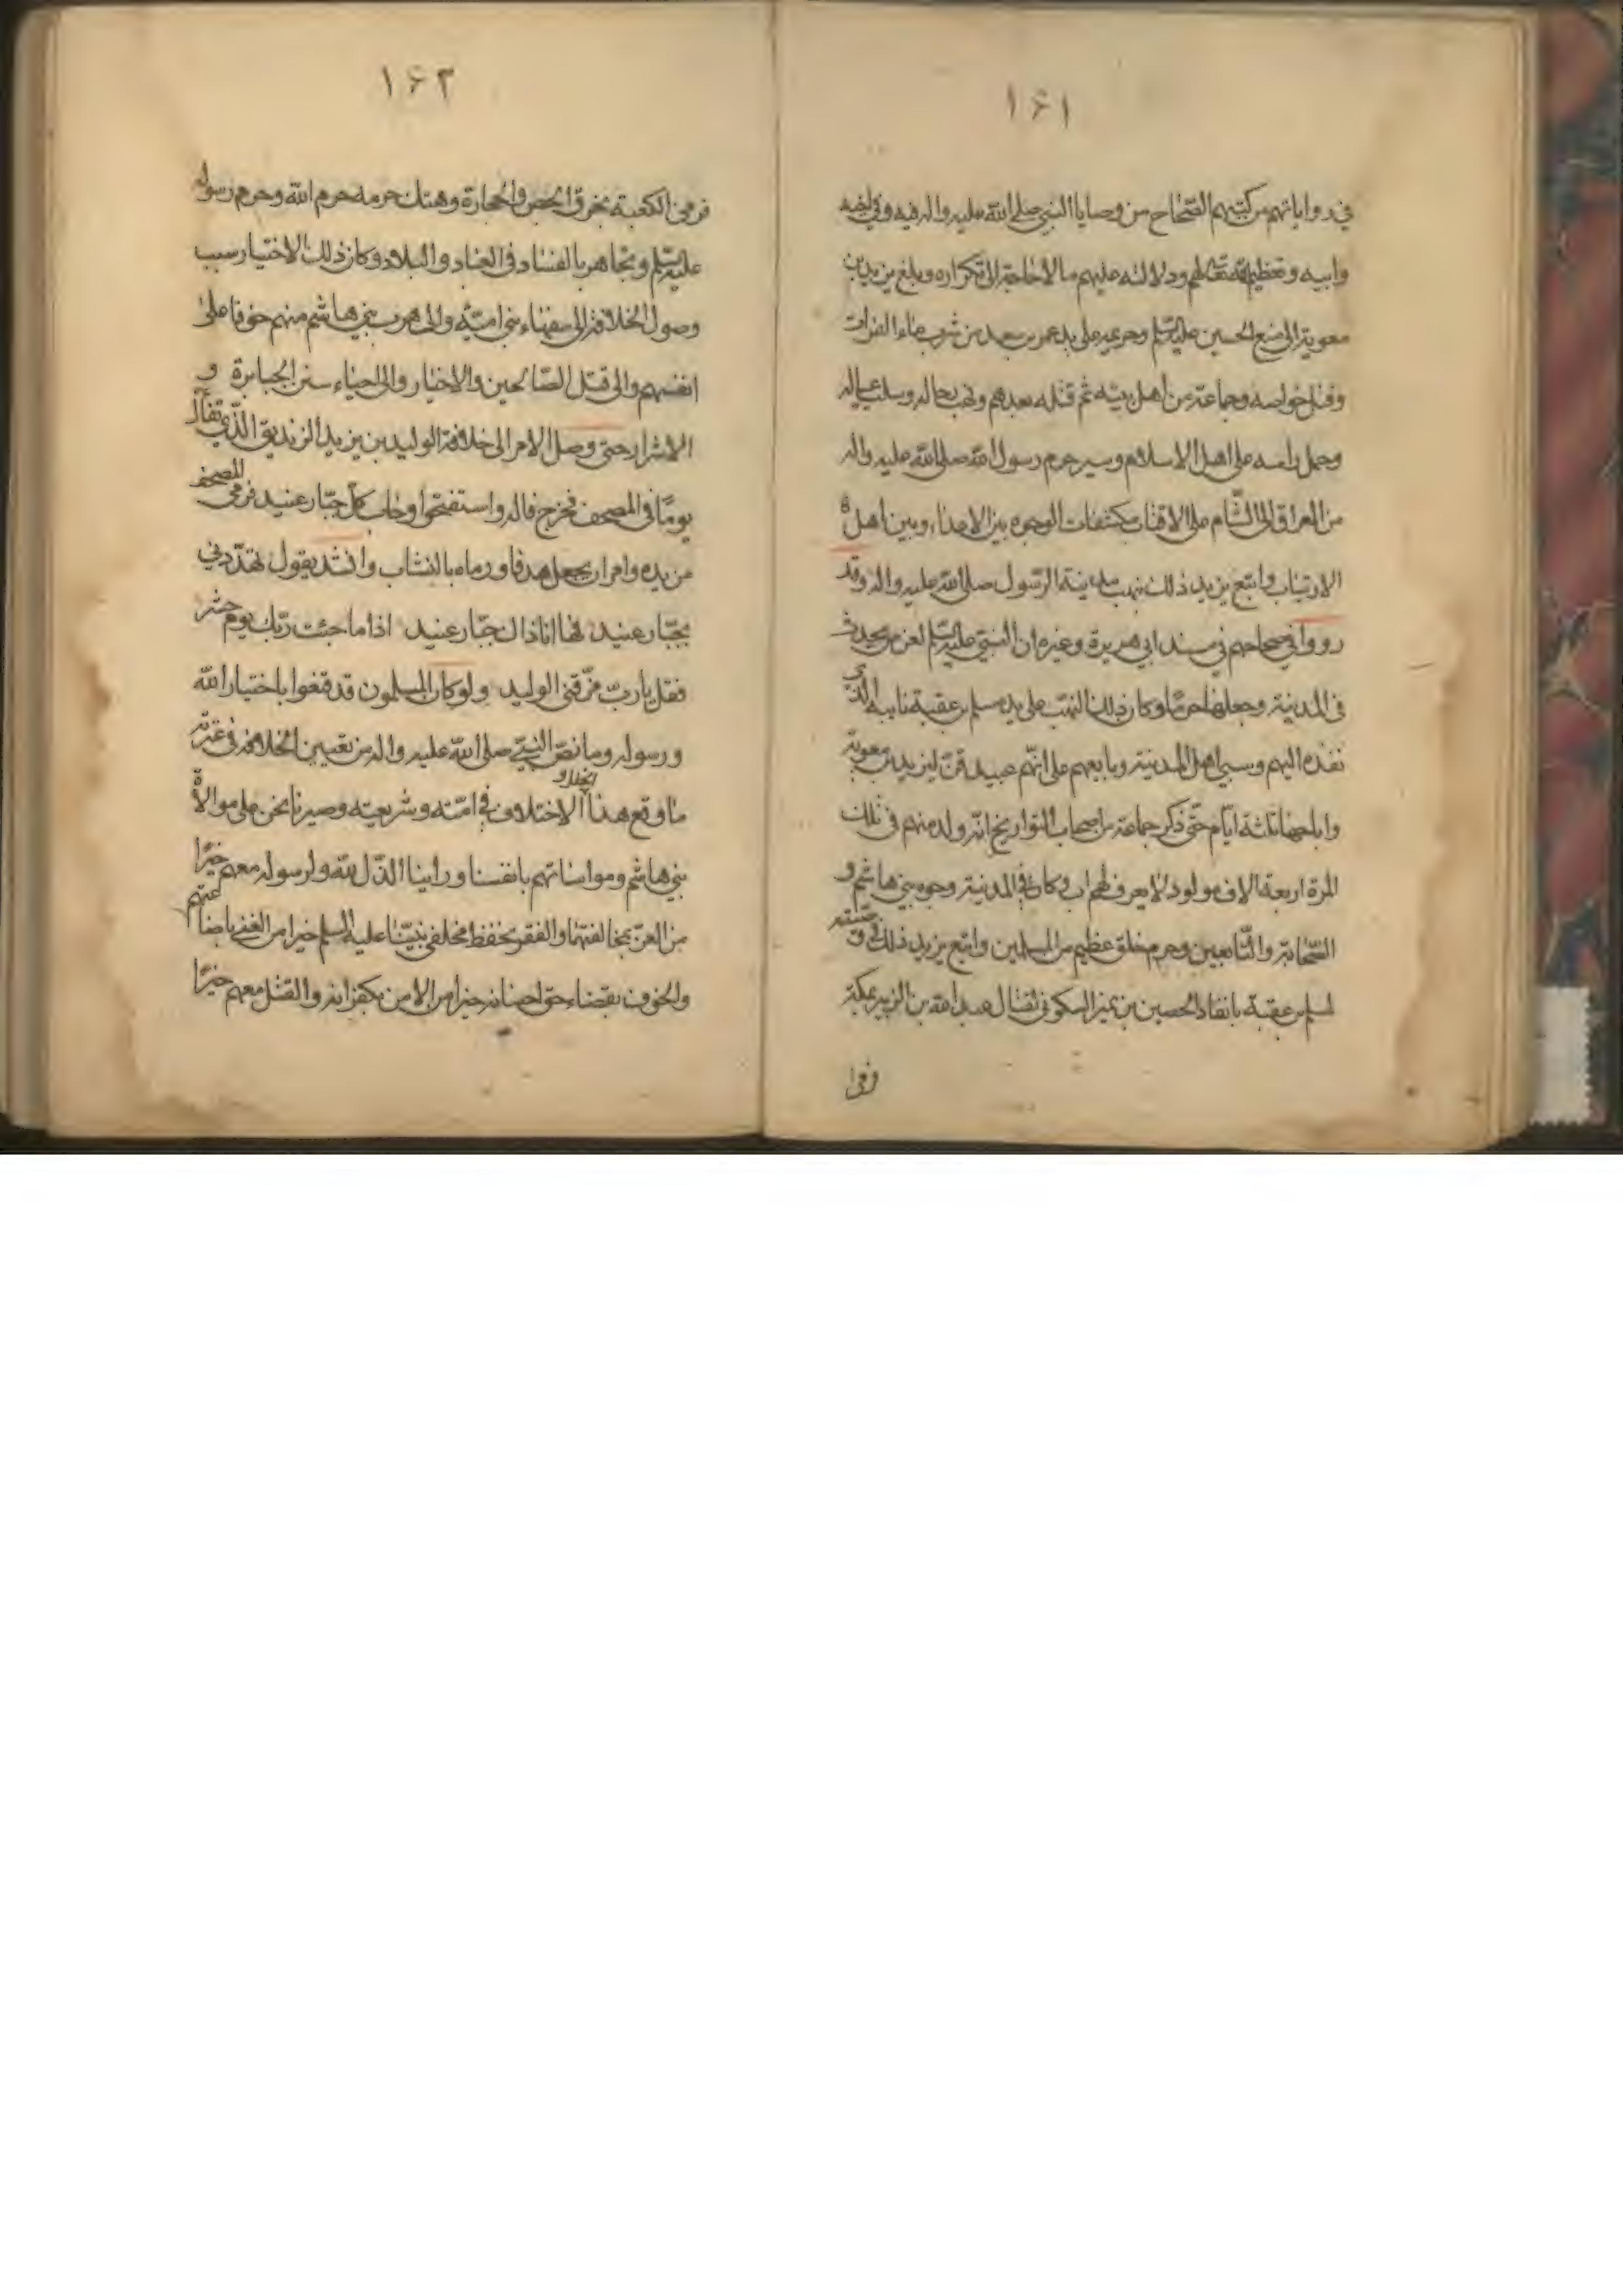 ١۶١
في رواياتهم من كتبهم الصّحاح من وصايا النبي صلى الله عليه واله فيه وفي اخيه
وابيه وتعظيم الله تعالى لهم ودلالته عليهم ما لا حاجة الى تكراره وبلغ يزيد بن
معوية الى منع الحسين عليه السلم وحريمه على يد عمر بن سعد من شرب ماء الفرات
وقتل خواصه وجماعة من اهل بيته ثم قتله بعدهم ونهب رحاله وسلب عياله
وحمل راسه على اهل الاسلام وسير حرم رسول الله صلى الله عليه واله
من العراق الى الشّام على الاقتاب مكشفات الوجوه بين الاعداء وبين اهل
الارتياب واتبع يزيد ذلك بنهب مدينة الرّسول صلى الله عليه واله وقد
رووا في صحاحهم في مسند ابي هريرة وغيره ان النبي عليه السلم لعن من يحدث
في المدينة وجعلها حرمًا وكان ذلك النهب على يد مسلم بن عقبة نايبه الذي
نفذه اليهم وسبي اهل المدينة وبايعهم على انّهم عبيد قنّ ليزيد بن معوية
واباحها ثلثة ايّام حتّى ذكر جماعة من اصحاب التواريخ انّه ولد منهم في تلك
المرة اربعة الاف مولود لا يعرف لهم اب وكان في المدينة وجوه بني هاشم و
الصّحابة والتّابعين وحرم خلق عظيم من المسلمين واتبع يزيد ذلك في وصيته
لمسلم بن عقبة بانفاذ الحصين بن نمير السكوني لقتال عبد الله بن الزبير بمكة
فرمى
١۶٢
فرمى الكعبة بخرق الحيض والحجارة وهتك حرمة حرم الله وحرم رسوله
عليه السلم وتجاهر بالفساد في العباد والبلاد وكان ذلك الاختيار سبب
وصول الخلافة الى سفهاء بني اميّة والى هرب بني هاشم منهم خوفا على
انفسهم والى قتل الصّالحين والاخيار والى احياء سنن الجبابرة و
الاشرار حتى وصل الامر الى خلافة الوليد بن يزيد الزنديق الذّي تفأل
يومًا في المصحف فخرج فاله واستفتحوا وخاب كلّ جبّار عنيد فرمى المصحف
من يده وامر ان يجعل هدفا ورماه بالنشاب وانشد يقول تهدّدني
بجبّار عنيد فها انا ذاك جبّار عنيد اذا ما جئت ربّك يوم حشر
فقل يا ربّ مزّقني الوليد ولو كان المسلمون قد قنعوا باختيار الله
ورسوله وما نصّ النبيّ صلى الله عليه واله من تعيين الخلافة في عترته
ما وقع هذا الخلل و الاختلاف في امّته وشريعته وصيرنا نحن على موالاة
بني هاشم ومواساتهم بانفسنا وراينا الذّل لله ولرسوله معهم خيرًا
من العزّ بمخالفتهما والفقر بحفظ مخلفي نبيّنا عليه السلم خيرا من الغنى باضاعتهم
والخوف بقضاء حق احسانه خيرا من الامن بكفرانه والقتل معهم خيرًا